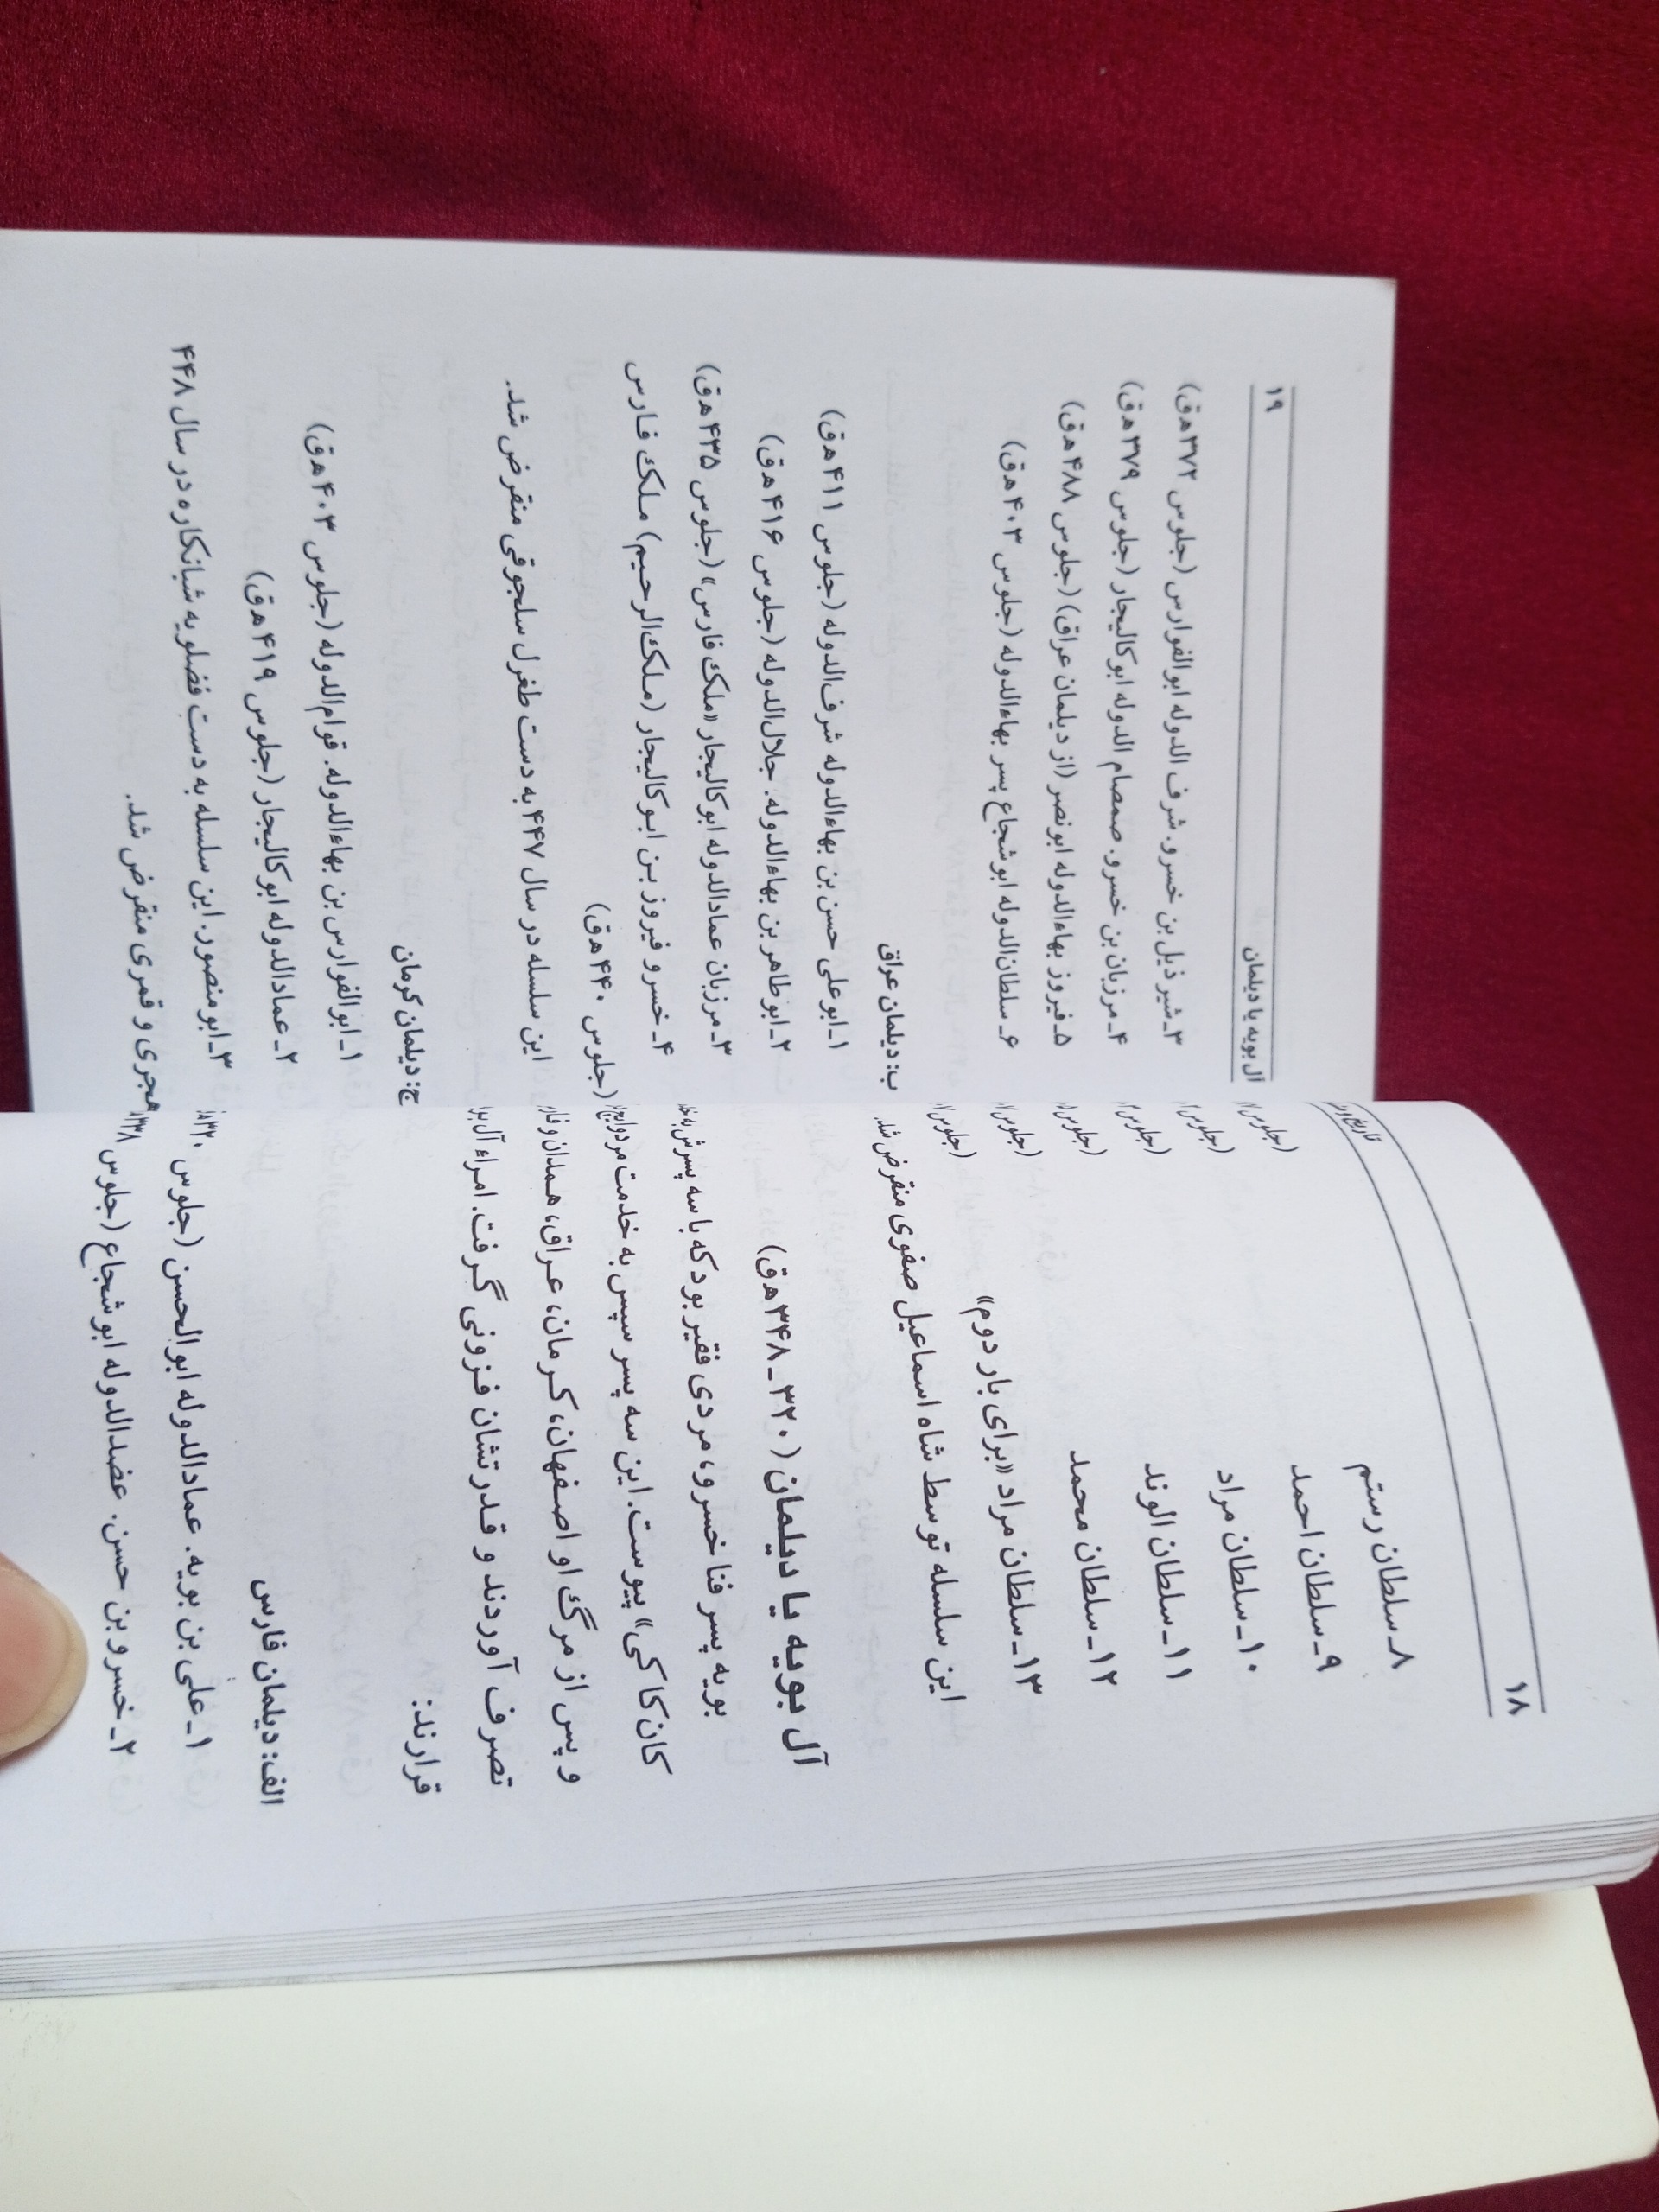 ۱۸
۸ـ سلطان رستم (جلوس
۹ـ سلطان احمد (جلوس
۱۰ـ سلطان مراد (جلوس
۱۱ـ سلطان الوند (جلوس
۱۲ـ سلطان محمد (جلوس
۱۳ـ سلطان مراد «برای بار دوم» (جلوس
این سلسله توسط شاه اسماعیل صفوی منقرض شد.
آل بویه یا دیلمان (۳۲۰ ـ ۳۴۸ ه‍.ق)
بویه پسر فنا خسرو، مردی فقیر بود که با سه پسرش به
کان کاکی» پیوست. این سه پسر سپس به خدمت مرداویج
و پس از مرگ او اصفهان، کرمان، عراق، همدان و
تصرف آوردند و قدرتشان فزونی گرفت. امراء آل
قرارند:
الف: دیلمان فارس
۱ـ علی بن بویه. عمادالدوله ابوالحسن (جلوس ۳۲۰
۲ـ خسرو بن حسن. عضدالدوله ابو شجاع (جلوس ۳۳۸
آل بویه یا دیلمان ۱۹
۳ـ شیر ذیل بن خسرو. شرف الدوله ابوالفوارس (جلوس ۳۷۲ ه‍.ق)
۴ـ مرزبان بن خسرو. صمصام الدوله ابوکالیجار (جلوس ۳۷۹ ه‍.ق)
۵ـ فیروز بهاءالدوله ابونصر (از دیلمان عراق) (جلوس ۴۸۸ ه‍.ق)
۶ـ سلطان‌الدوله ابوشجاع پسر بهاءالدوله (جلوس ۴۰۳ ه‍.ق)
ب: دیلمان عراق
۱ـ ابوعلی حسن بن بهاءالدوله شرف‌الدوله (جلوس ۴۱۱ ه‍.ق)
۲ـ ابوطاهر بن بهاءالدوله. جلال‌الدوله (جلوس ۴۱۶ ه‍.ق)
۳ـ مرزبان عمادالدوله ابوکالیجار «ملک فارس» (جلوس ۴۳۵ ه‍.ق)
۴ـ خسرو فیروز بن ابوکالیجار (ملک‌الرحیم) ملک فارس
(جلوس ۴۴۰ ه‍.ق)
این سلسله در سال ۴۴۷ به دست طغرل سلجوقی منقرض شد.
ج: دیلمان کرمان
۱ـ ابوالفوارس بن بهاءالدوله. قوام‌الدوله (جلوس ۴۰۳ ه‍.ق)
۲ـ عمادالدوله ابوکالیجار (جلوس ۴۱۹ ه‍.ق)
۳ـ ابو منصور. این سلسله به دست فضلویه شبانکاره در سال ۴۴۸
هجری و قمری منقرض شد.